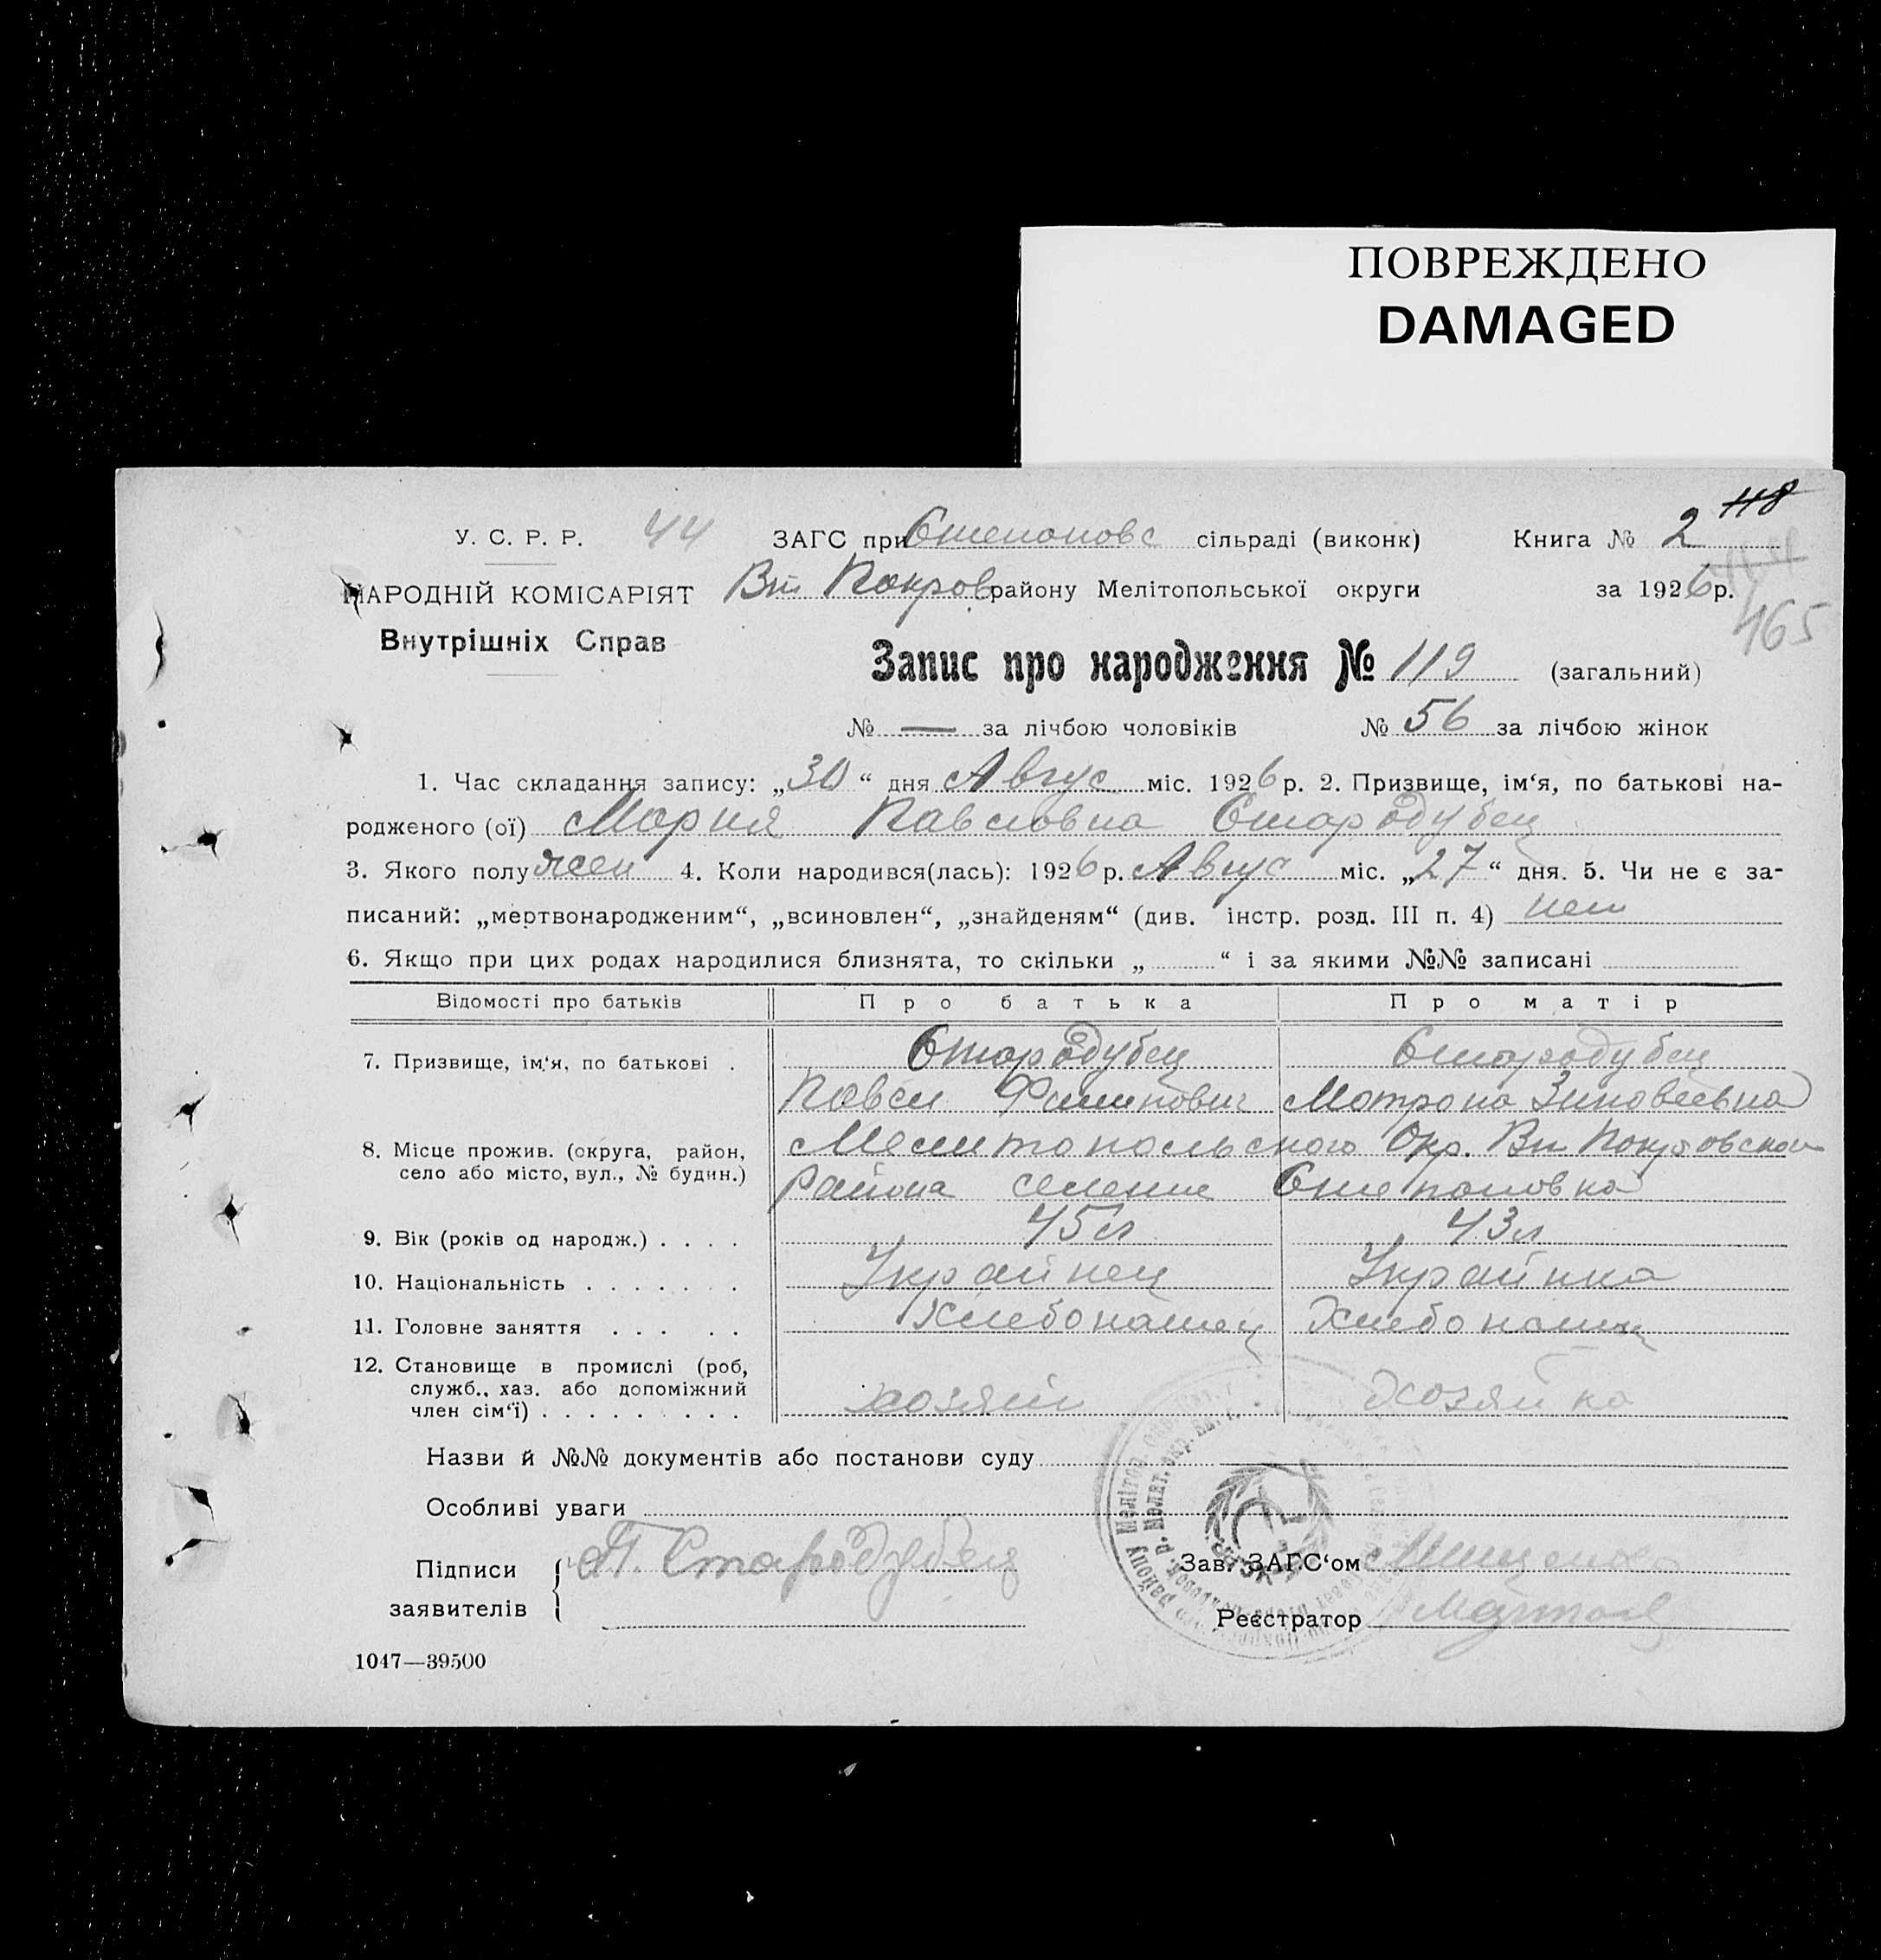 ПОВРЕЖДЕНО
DAMAGED
118
У. С. Р. Р. 44 ЗАГС при Степановс сільраді (виконк) Книга № 2
НАРОДНІЙ КОМІСАРІЯТ Вт Покров району Мелітопольської округи за 1926 р.
465
Внутрішніх Справ
Запис про народження № 119 (загальний)
№ — за лічбою чоловіків № 56 за лічбою жінок
1. Час складання запису: „30“ дня Авгус міс. 1926 р. 2. Призвище, ім‘я, по батькові на-
родженого (ої) Мария Павловна Стародубец
3. Якого полу жен 4. Коли народився(лась): 1926 р. Авгус міс. „27“ дня. 5. Чи не є за-
писаний: „мертвонародженим“, „всиновлен“, „знайденям“ (див. інстр. розд. III п. 4) нет
6. Якщо при цих родах народилися близнята, то скільки „ “ і за якими №№ записані
Відомості про батьків Про батька Про матір
7. Призвище, ім‘я, по батькові . Стародубец Стародубец
Павел Филипович Матрона Зиновеевна
8. Місце прожив. (округа, район, Мелитопольского Окр. Вт Покровского
село або місто, вул., № будин.) района селение Степановка
9. Вік (років од народж.) . . . . 45 л 43 л
10. Національність . . . . . . . Украйнец Украйнка
11. Головне заняття . . . . . Хлебопашец Хлебопашец
12. Становище в промислі (роб,
служб., хаз. або допоміжний
член сім‘ї) . . . . . . . . . хозяин Хозяйка
Назви й №№ документів або постанови суду
Особливі уваги
Підписи П. Стародубец Зав. ЗАГС‘ом Мищенко
заявителів Реєстратор
1047—39500